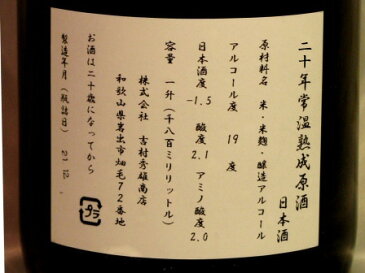 二十年常温熟成原酒
日本酒
原材料名 米・米麹・醸造アルコール
アルコール度 19 度
日本酒度 -1.5 酸度 2.1 アミノ酸度 2.0
容量 一升(千八百ミリリットル)
株式会社 吉村秀雄商店
和歌山県岩出市畑毛72番地
お酒は二十歳になってから
製造年月(瓶詰日) 21.12
プラ